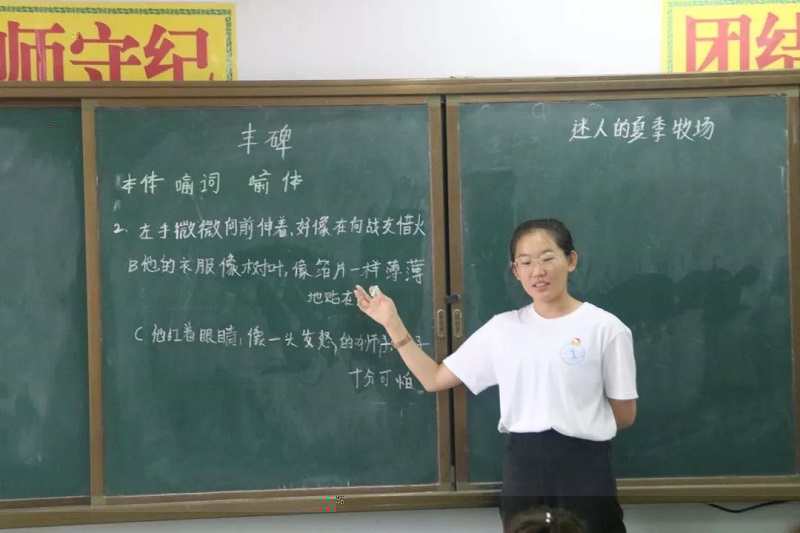 师守纪
团结
丰碑
迷人的夏季牧场
本体 喻词 喻体
2. 左手微微向前伸着,好像在向战友借火
B他的衣服像树叶,像箔片一样薄薄
地贴在
C 他红着眼睛,像一头发怒的狮子
十分可怕。